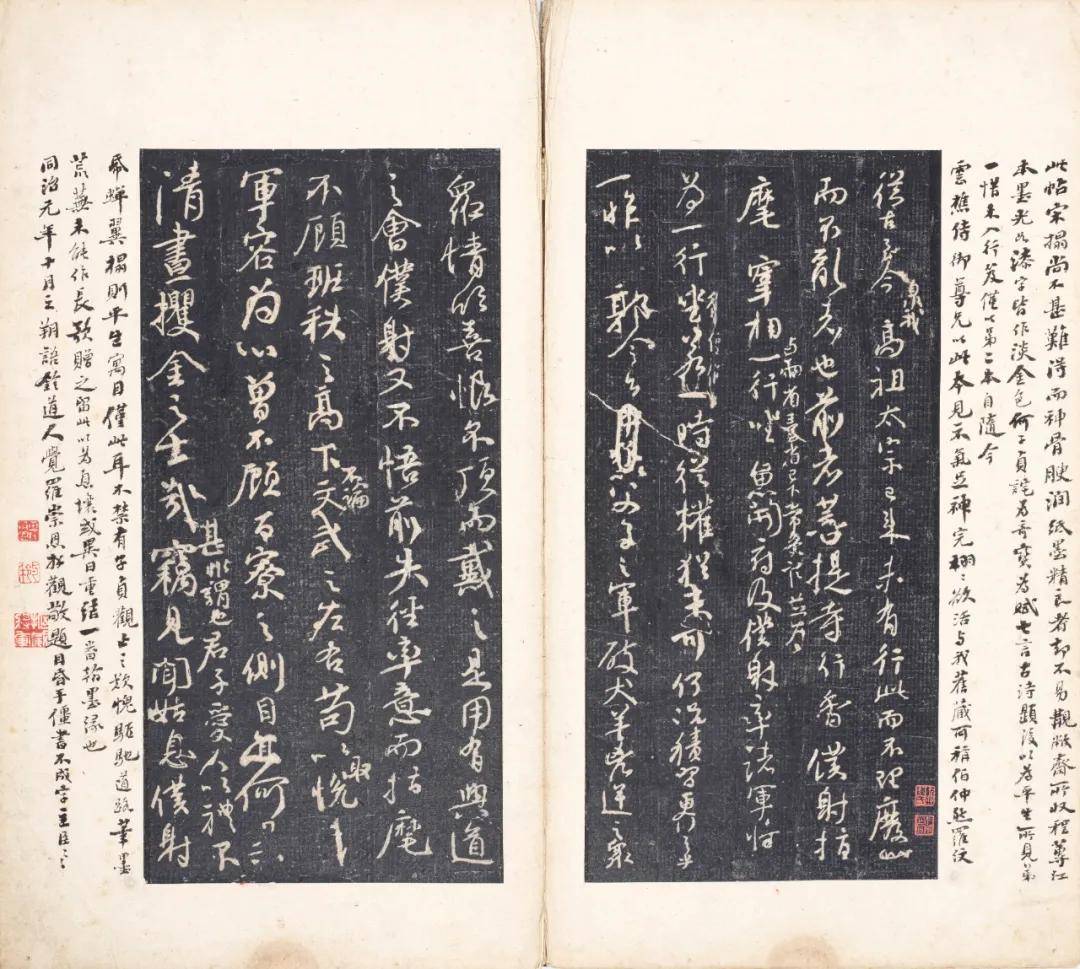 此帖宋搨尚不甚難得而神骨腴潤紙墨精良者卻不易覯敝齋所收程蓴江
本墨光如漆字皆作淡金色何子貞詫為奇寶為賦七言古詩題後以為平生所見第
一惜未入行笈僅以第二本自隨今
雲樵侍御尊兄以此本見示氣足神完栩〻欲活與我舊藏可稱伯仲然羅紋
從古至今暨我高祖太宗已來未有行此而不理廢此
而不亂者也前者菩提寺行香僕射指
麾宰相與兩省臺省已下常參官並為一行坐魚開府及僕射率諸軍將
為一行坐若一時從權猶未可何況積習更行之乎
一昨以郭令公以父子之軍破犬羊凶逆之眾
眾情欣喜恨不頂而戴之是用有興道
之會僕射又不悟前失徑率意而指麾
不顧班秩之高下不論文武之左右苟以取悅
軍容為心曾不顧百寮之側目亦何異
清晝攫金之士哉甚非謂也君子愛人以禮不竊見聞姑息僕射
帋蟬翼搨則平生寓目僅此耳不禁有子貞觀止之歎愧驅馳道路筆墨
荒蕪未能作長歌贈之留此以為息壤或異日重結一番翰墨緣也
同治元年十月三朔語鈴道人覺羅崇恩拜觀敬題目昏手僵書不成字主臣〻〻